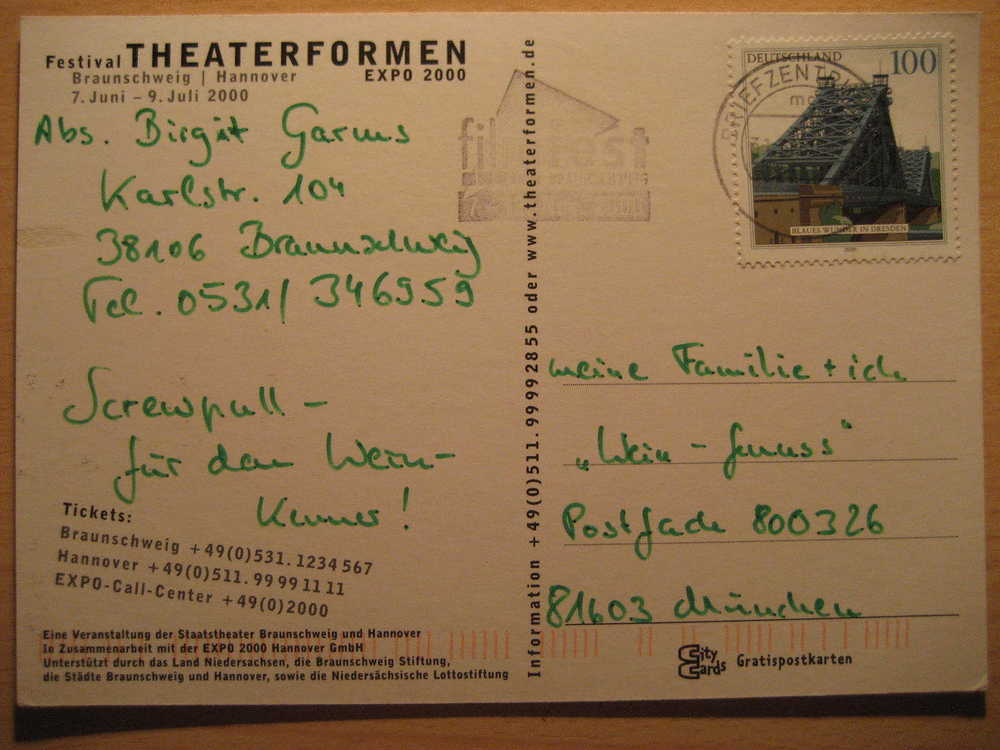 Festival THEATERFORMEN
Braunschweig | Hannover EXPO 2000
7. Juni – 9. Juli 2000
Abs. Birgit Garms
Karlstr. 104
38106 Braunschweig
Tel. 0531/346959
Screwpull –
für den Wein-
Kenner!
Tickets:
Braunschweig +49(0)531. 1234 567
Hannover +49(0)511. 99 99 11 11
EXPO-Call-Center +49(0)2000
Eine Veranstaltung der Staatstheater Braunschweig und Hannover
In Zusammenarbeit mit der EXPO 2000 Hannover GmbH
Unterstützt durch das Land Niedersachsen, die Braunschweig Stiftung,
die Städte Braunschweig und Hannover, sowie die Niedersächsische Lottostiftung
Information +49(0)511.99992855 oder www.theaterformen.de
filmfest
BRIEFZENTRUM
DEUTSCHLAND 100
BLAUES WUNDER IN DRESDEN
meine Familie + ich
„Wein – Genuss“
Postfach 800326
81603 München
City Cards Gratispostkarten